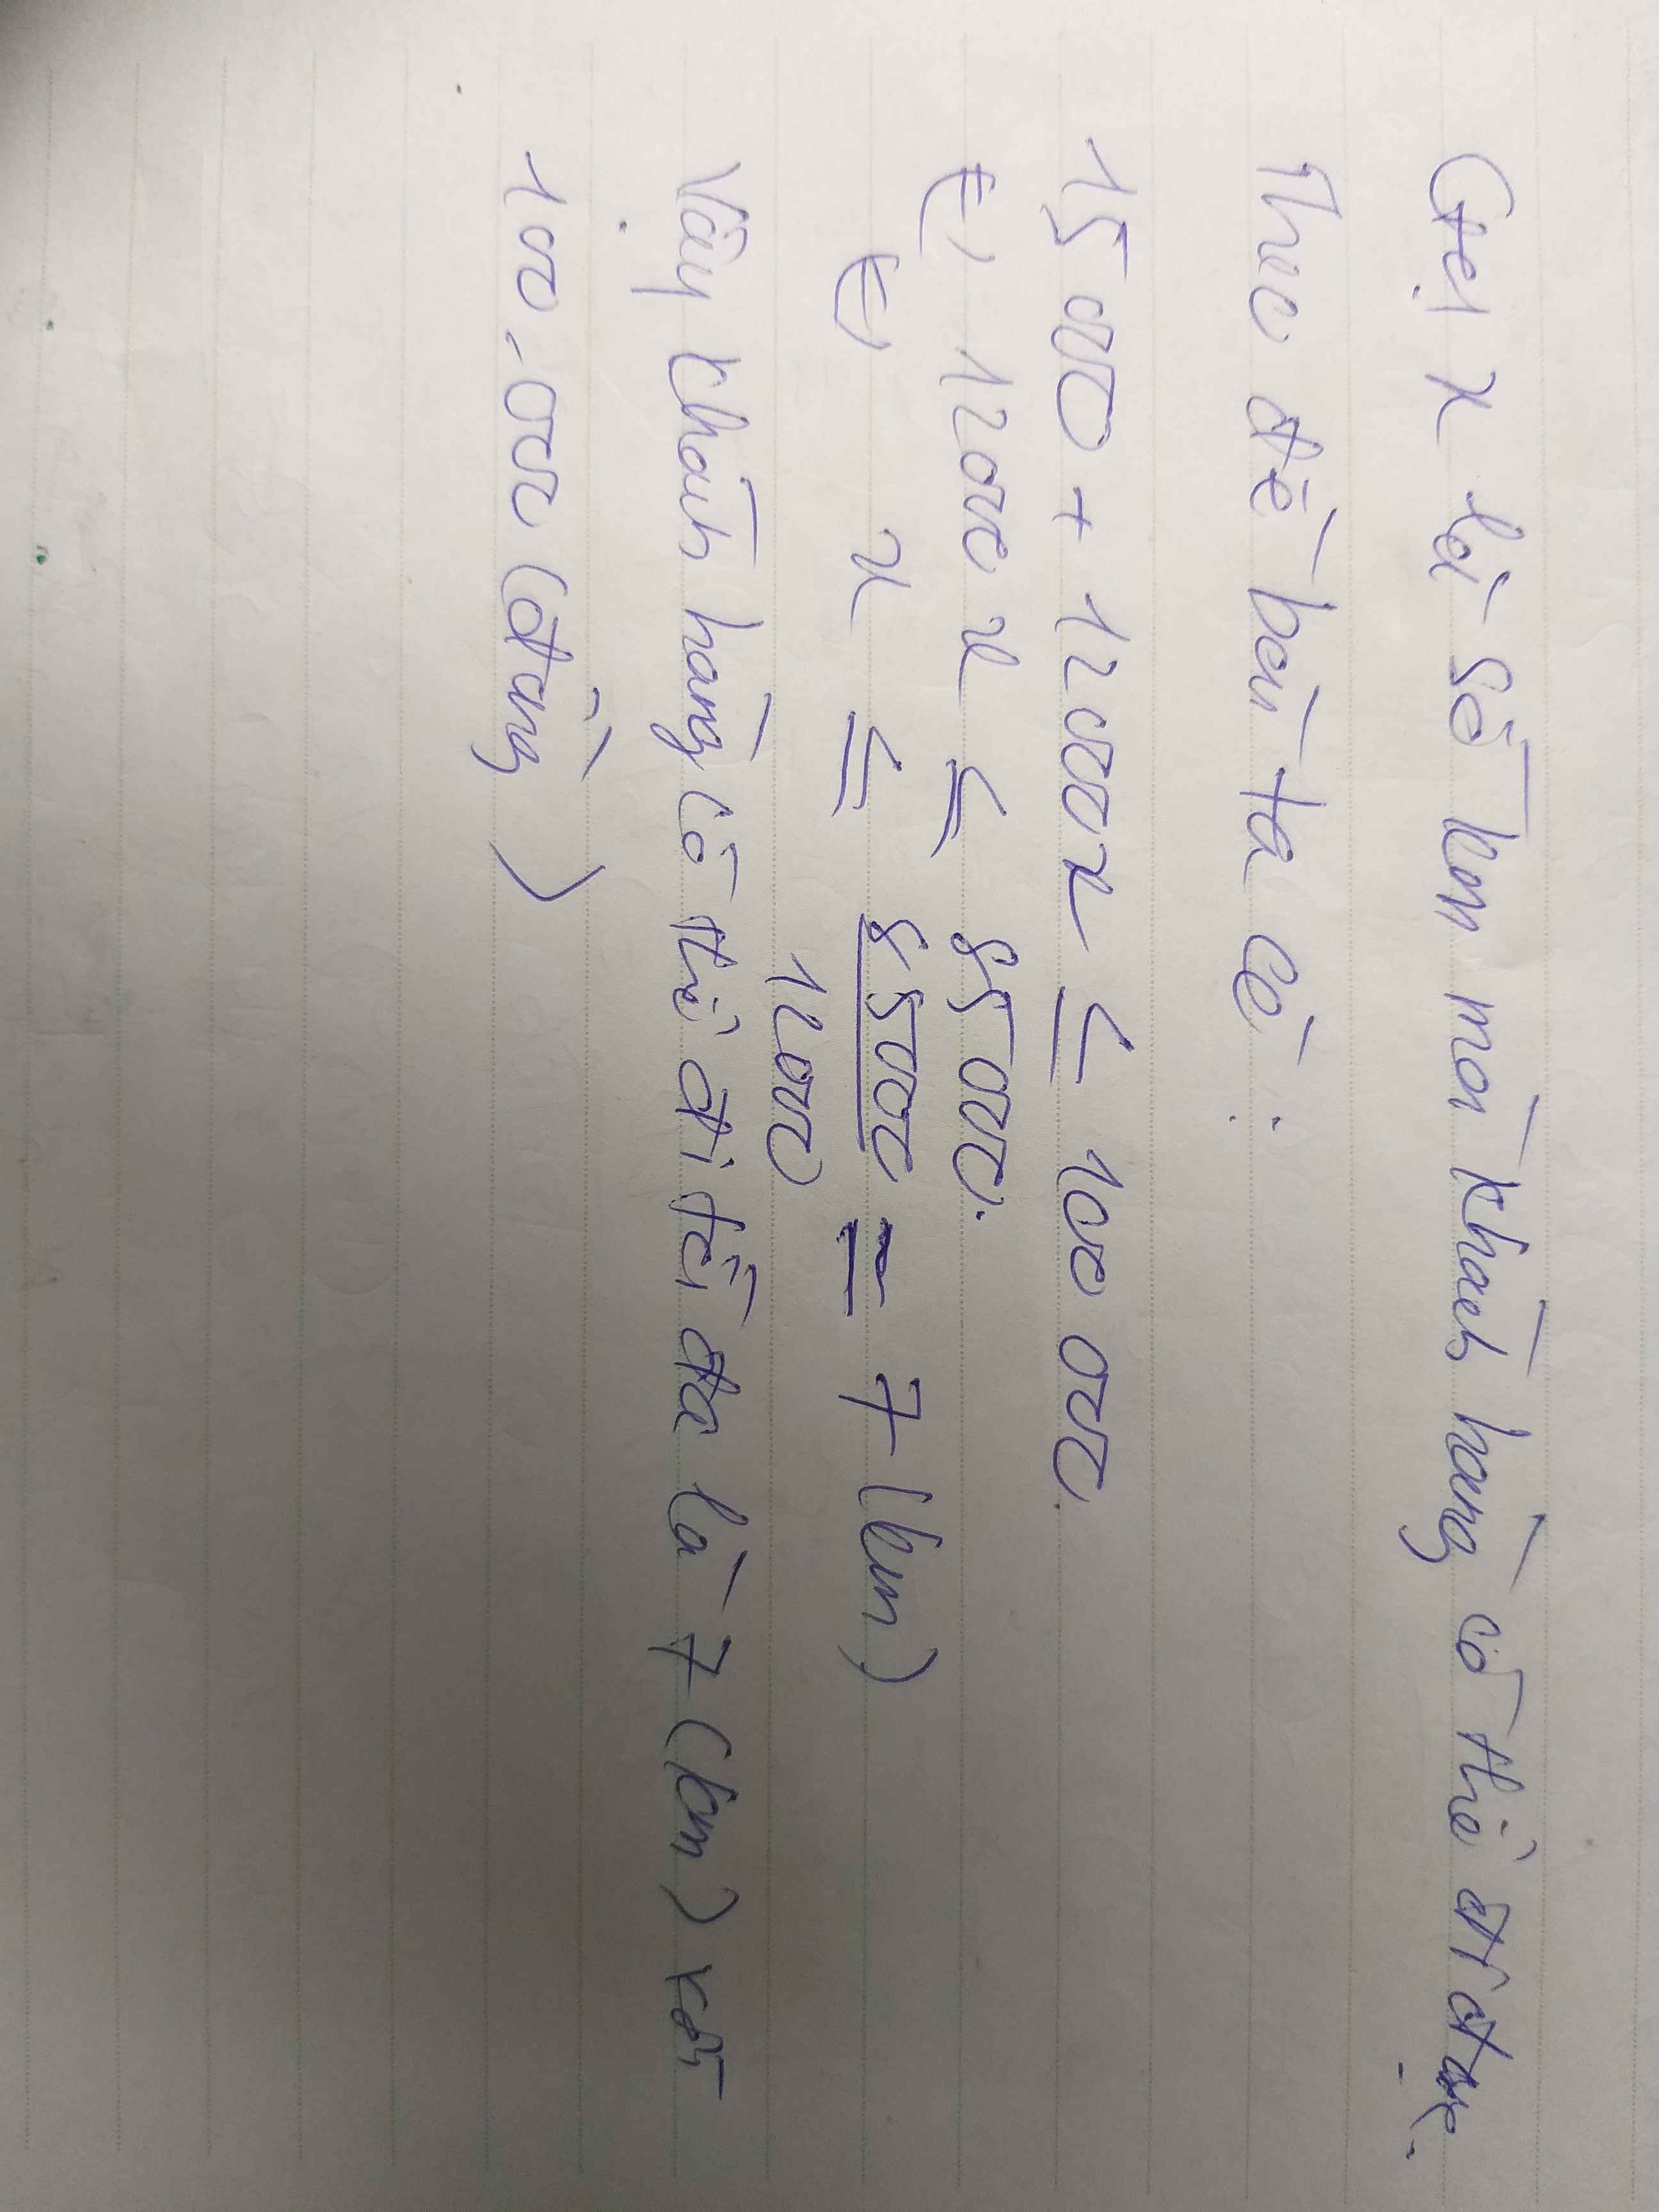 Gọi x là số km mà khách hàng có thể đi được.
Theo đề bài ta có:
15000 + 12000x ≤ 100 000.
⇔ 12000 x ≤ 85000.
⇔ x ≤ 85000/12000 = 7 (km)
Vậy khách hàng có thể đi tối đa là 7 (km) với
100.000 (đồng)